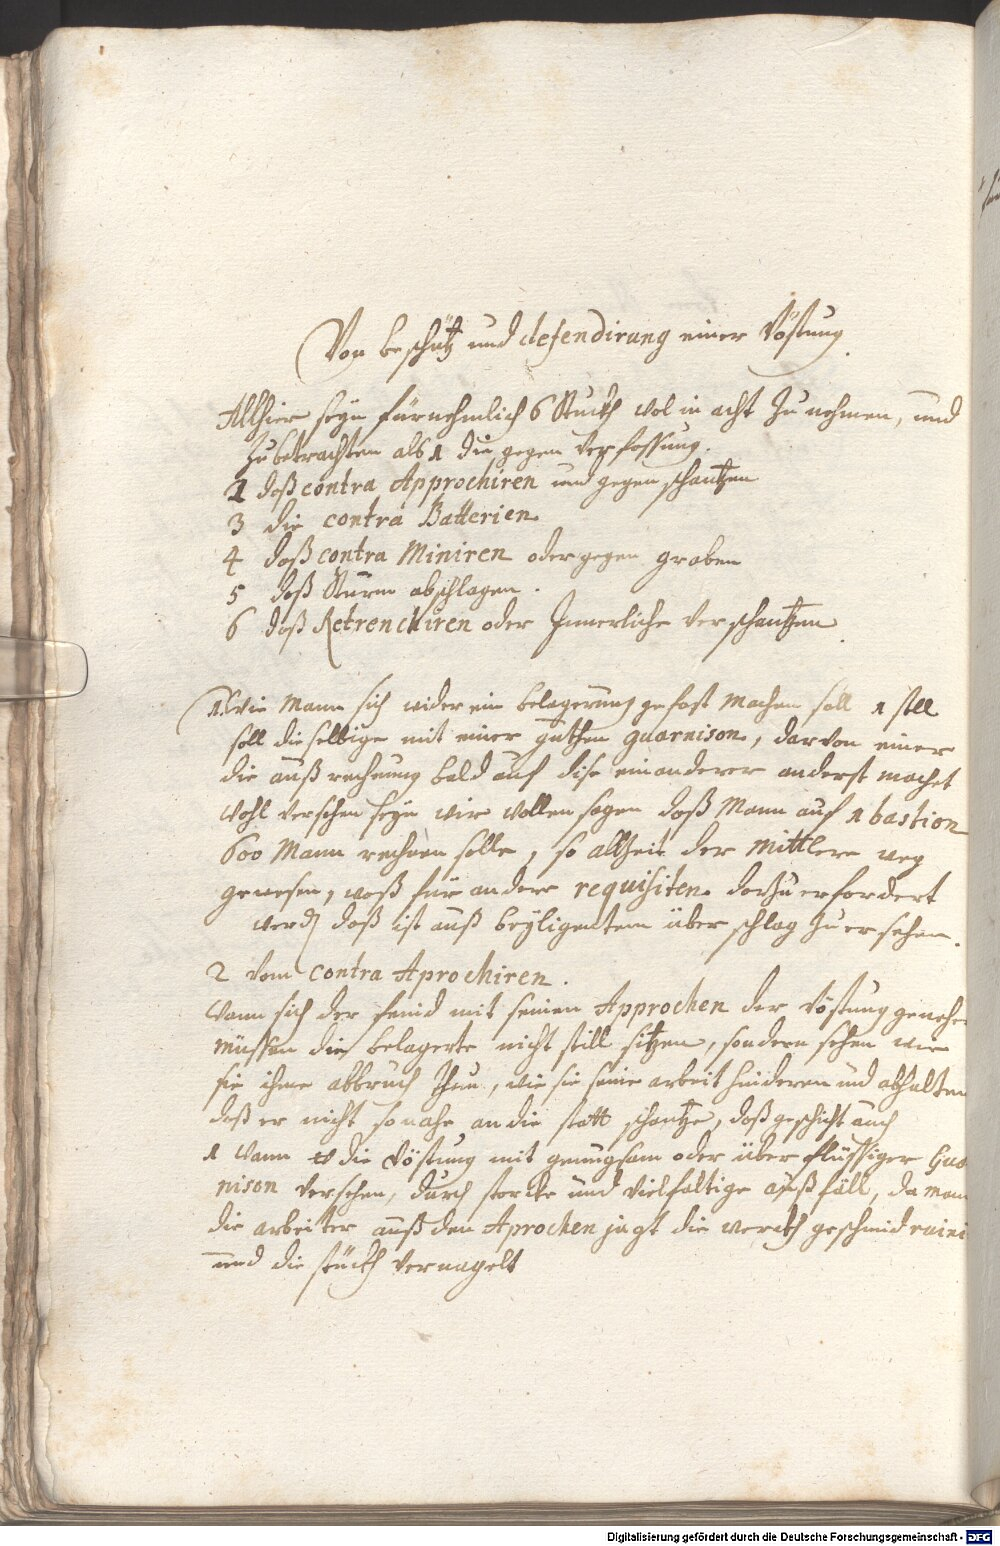 Von beschütz und defendirung einer Vöstung.
Allhier seyn fürnehmlich 6 Stuckh wol in acht zu nehmen, und
zu betrachten als 1 die gegen verfassung.
2 daß contra Approchiren und gegen schantzen
3 die contra Batterien.
4 daß contra Miniren oder gegen graben
5 daß Sturm abschlagen.
6 daß Retrenchiren oder Innerliche verschantzen
1. Wie Mann sich wider ein belagerung gefast machen soll 1 soll
soll die selbige mit einer guthen guarnison, darvon einer
die außrechnung bald auf dise ein anderer anderst machet
wohl versehen seyn wir wollen sagen daß Mann auf 1 bastion
600 Mann rechnen solle, so allzeit der mittlere weg
gewesen, waß für andere requisiten darzu erfordert
werd daß ist auß beyligentem überschlag zu ersehen.
2 Vom contra Aprochiren.
Wann sich der feind mit seinen Approchen der Vöstung genehe
müssen die belagerte nicht still sitzen, sondern sehen wie
sie ihme abbruch thun, wie sie seine arbeit hinderen und abhalten
daß er nicht so nahe an die statt schantze, daß geschicht auch
1 wann die Vöstung mit genugsam oder über flüssiger Gua
nison versehen, durch starcke und vielfaltige außfäll, da man
die arbeiter auß den Aprochen jagt die werckh geschwid ruini
und die stückh vernagelt
Digitalisierung gefördert durch die Deutsche Forschungsgemeinschaft - DFG